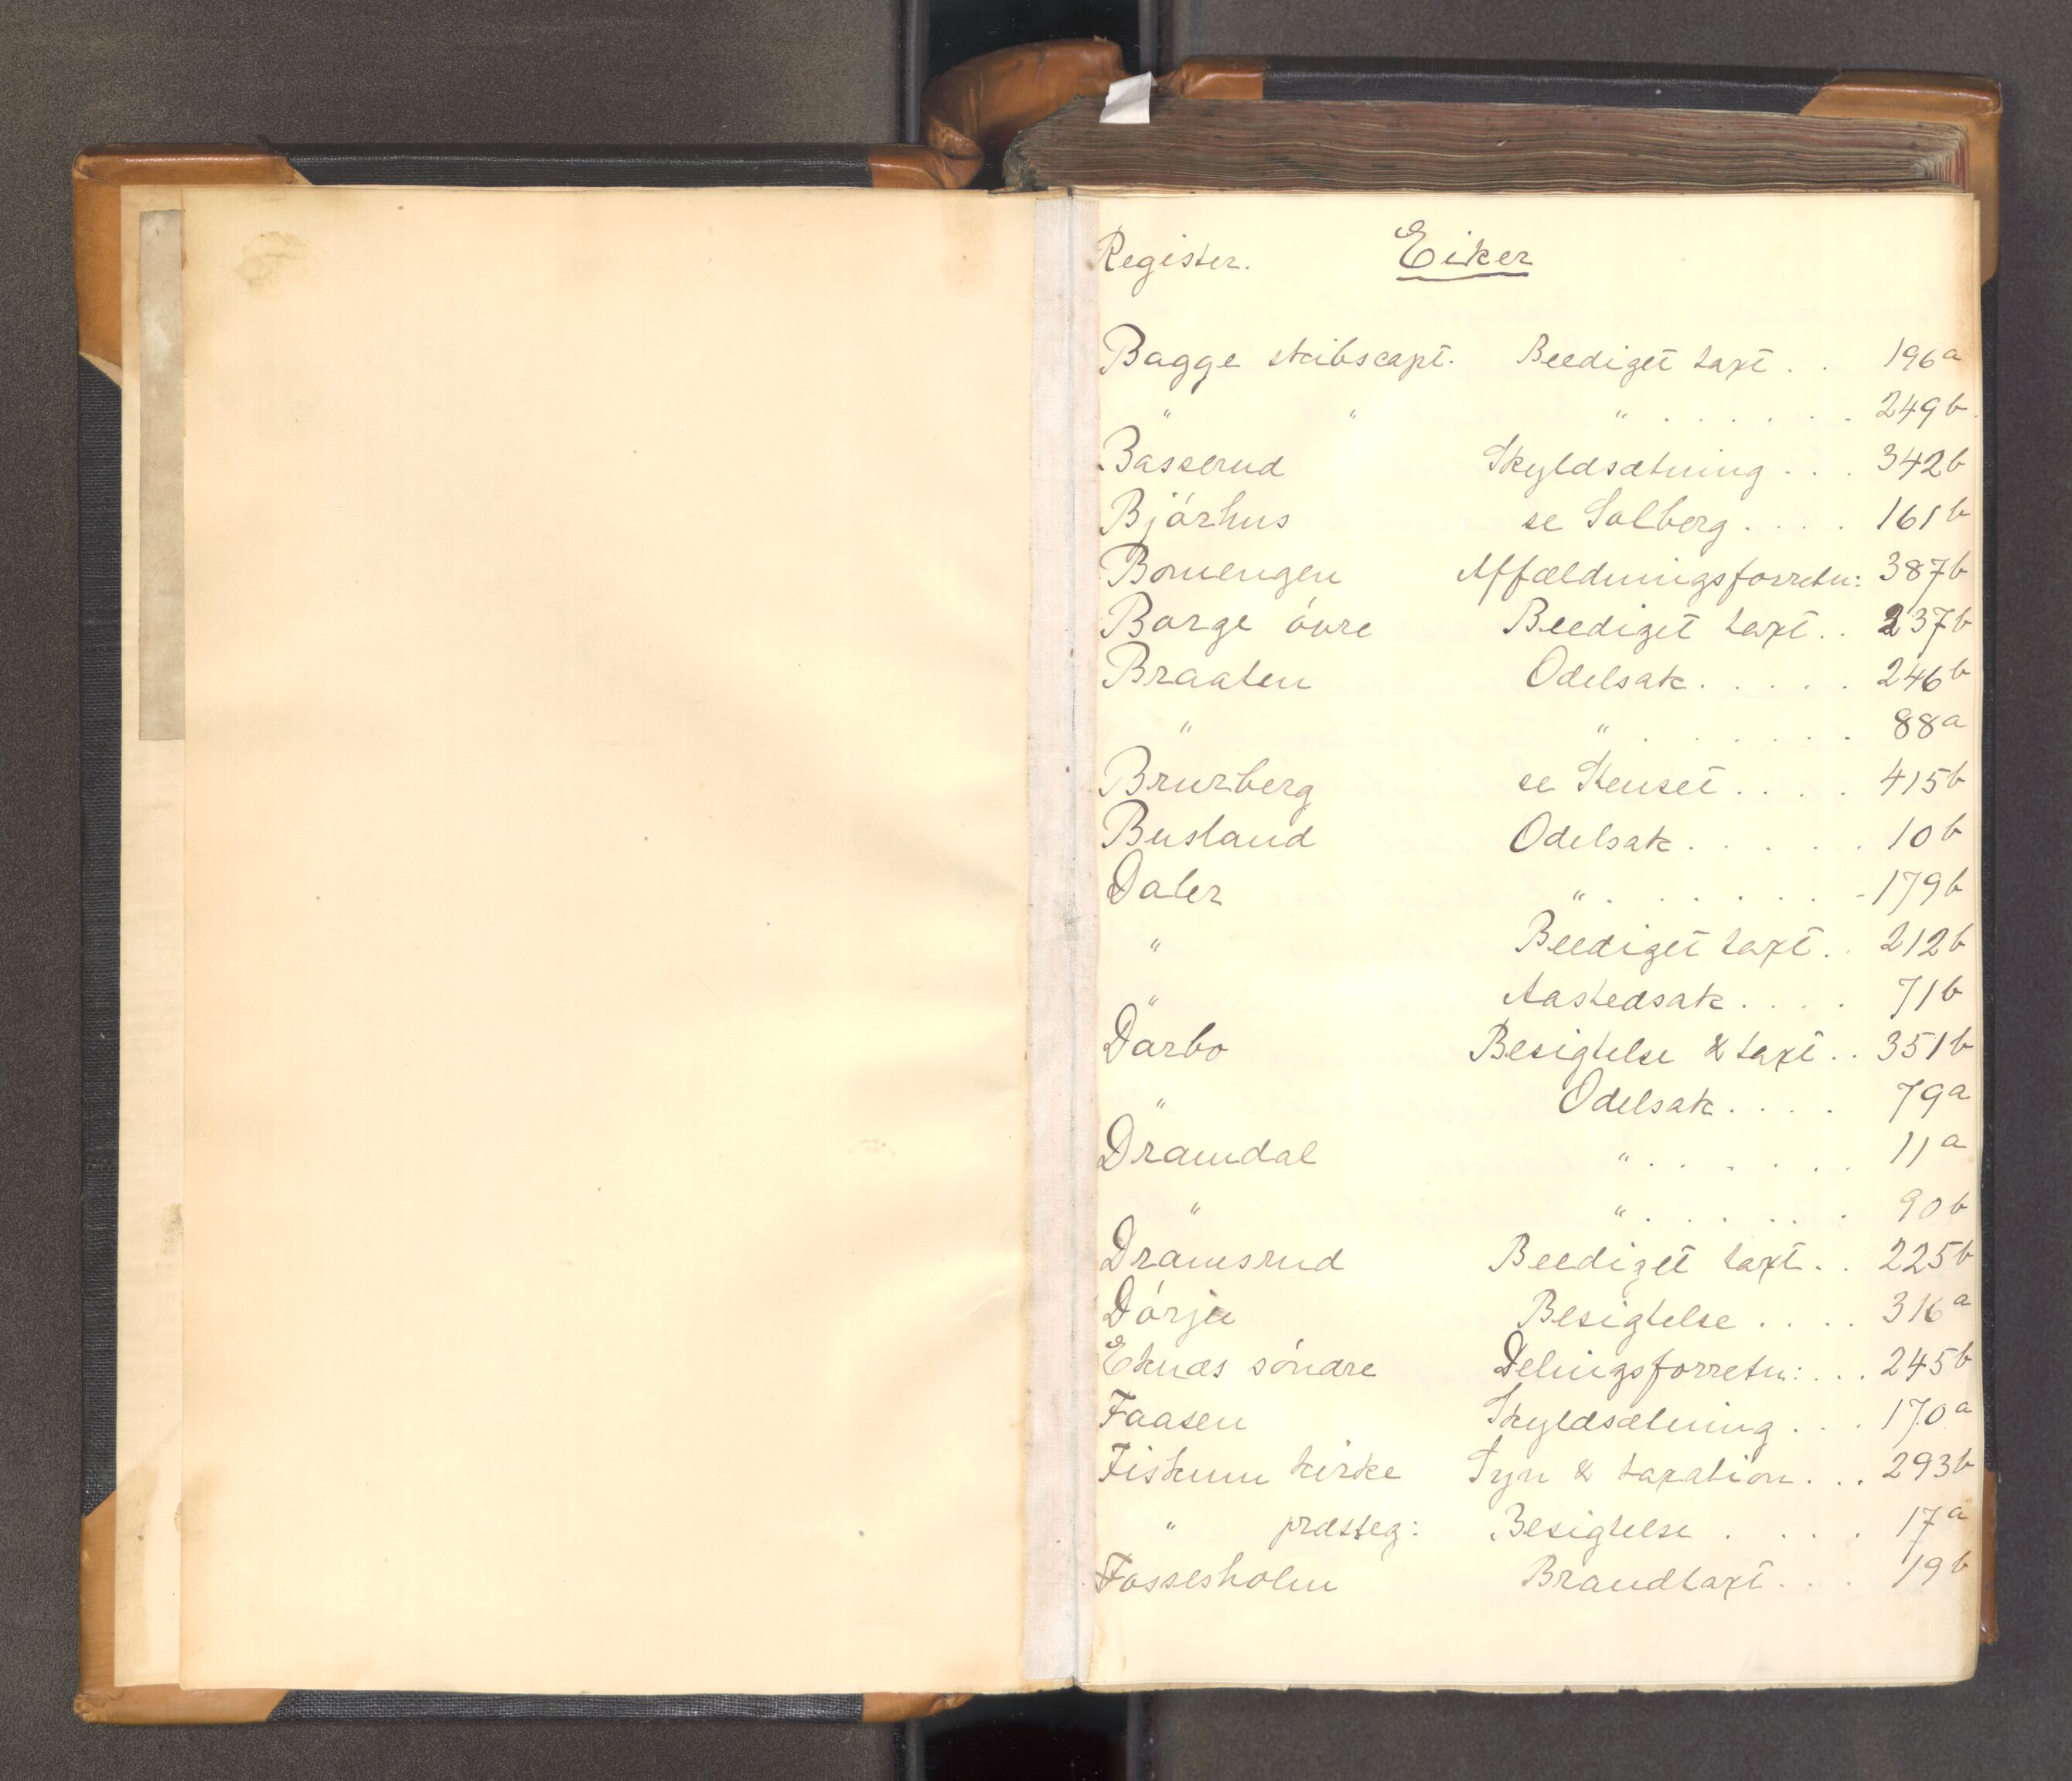 Register. Eiker
Bagge skibscapt. Beediget taxt . . 196a
" " " . . . . . . 249b.
Basserud Skyldsætning . . . 342b
Bjórhus se Solberg . . . . 161b
Bomengen Affældningsforretn: 387b
Borge óvre Beediget taxt . . 237b
Braaten Odelsak . . . . . 246b
" " . . . . . . 88a
Brurberg se Stenset . . . . 415b
Busland Odelsak . . . . . 10b
Daler " . . . . . . . 179b
" Beediget taxt . . 212b
" Aastedsak . . . . 71b
Darbo Besigtelse & taxt . . 351b
" Odelsak . . . . 79a
Dramdal " . . . . . . 11a
" " . . . . . . 90b
Dramsrud Beediget taxt . . 225b
Dórja Besigtelse . . . . 316a
Eknæs sóndre Delingsforretn: . . . 245b
Faasen Skyldsætning . . . 170a
Fiskum kirke Syn & taxation . . . 293b
" præsteg: Besigtelse . . . . 17a
Fossesholm Brandtaxt . . . 19b